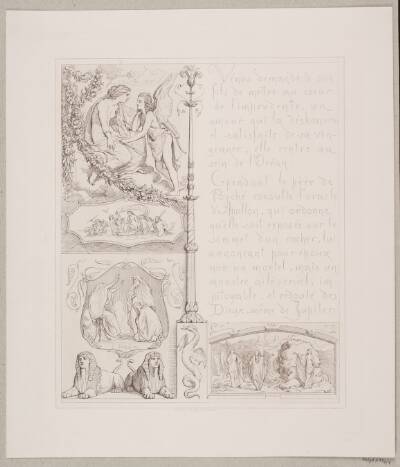 Vénus demande à son
fils de mettre au cœur
de l'imprudente, un
amour qui la déshonore
et satisfaite de sa ven-
geance, elle rentre au
sein de l'Océan.
Cependant le père de
Psyché consulte l'oracle
d'Apollon, qui ordonne
qu'elle soit exposée sur le
sommet d'un rocher, lui
annonçant pour époux
non un mortel, mais un
monstre aîlé, cruel, im
pitoyable, et redouté des
Dieux, même de Jupiter.